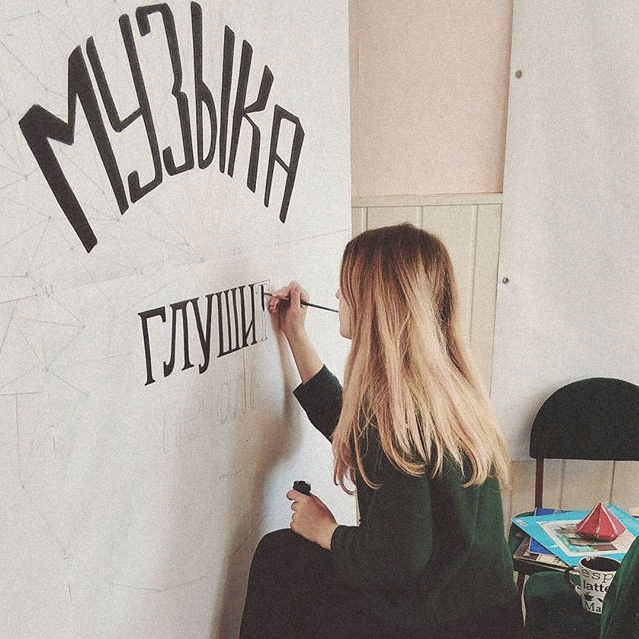 МУЗЫКА
ГЛУШИТ
esp
latte
Ma